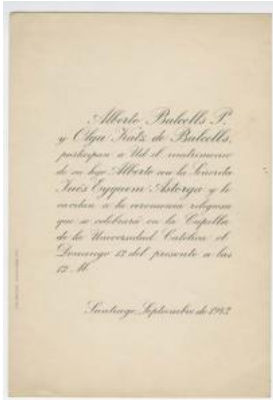 Alberto Balcells P.
y Olga Katz de Balcells,
participan a Ud el matrimonio
de su hijo Alberto con la Señorita
Inés Eyquem Astorga y lo
invitan a la ceremonia religiosa
que se celebrará en la Capilla
de la Universidad Católica el
Domingo 12 del presente a las
12 M
Santiago, Septiembre de 1943